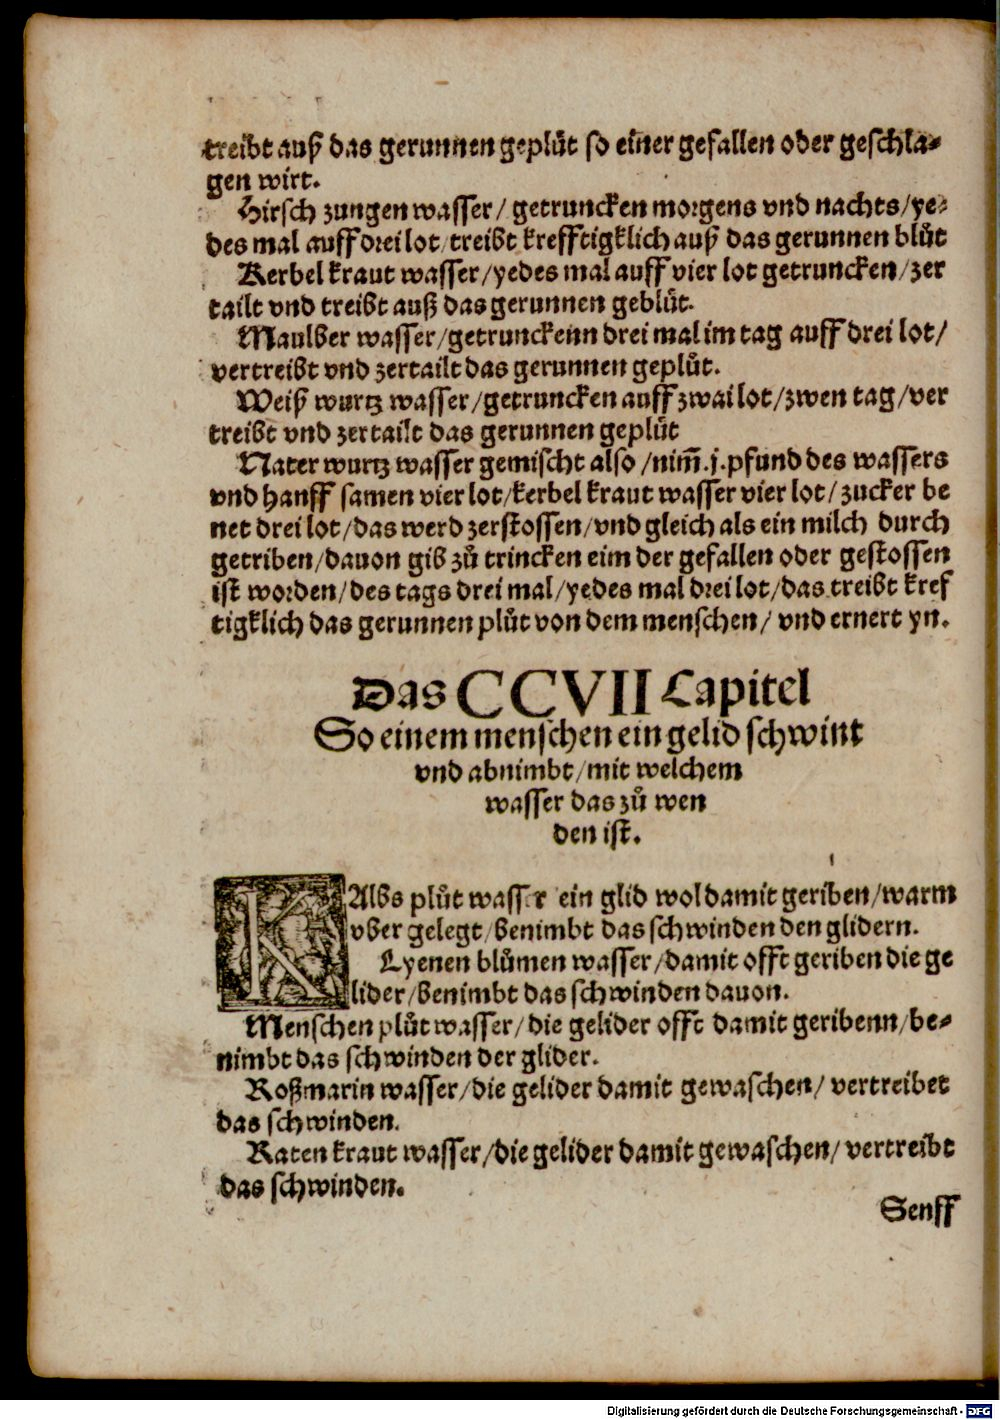 treibt auß das gerunnen geplůt so einer gefallen oder geschla⸗
gen wirt.
Hirsch zungen wasser/ getruncken morgens vnd nachts/ ye⸗
des mal auff drei lot/ treibt krefftigklich auß das gerunnen blůt
Kerbel kraut wasser/ yedes mal auff vier lot getruncken/ zer
tailt vnd treibt auß das gerunnen geblůt.
Maulber wasser/ getrunckenn drei mal im tag auff drei lot/
vertreibt vnd zertailt das gerunnen geplůt.
Weiß wurtz wasser/ getruncken auff zwai lot/ zwen tag/ ver
treibt vnd zertailt das gerunnen geplůt
Nater wurtz wasser gemischt also/ nim̃.j.pfund des wassers
vnd hanff samen vier lot/ kerbel kraut wasser vier lot/ zucker be
net drei lot/ das werd zerstossen/ vnd gleich als ein milch durch
getriben/ dauon gib zů trincken eim der gefallen oder gestossen
ist worden/ des tags drei mal/ yedes mal drei lot/ das treibt kref
tigklich das gerunnen plůt von dem menschen/ vnd ernert yn.
Das CCVII Capitel
So einem menschen ein gelid schwint
vnd abnimbt/ mit welchem
wasser das zů wen
den ist.
KAlbs plůt wasser ein glid wol damit geriben/ warm
vber gelegt/ benimbt das schwinden den glidern.
Lyenen blůmen wasser/ damit offt geriben die ge
lider/ benimbt das schwinden dauon.
Menschen plůt wasser/ die gelider offt damit geribenn/ be⸗
nimbt das schwinden der glider.
Roßmarin wasser/ die gelider damit gewaschen/ vertreibet
das schwinden.
Raten kraut wasser/ die gelider damit gewaschen/ vertreibt
das schwinden.
Senff
Digitalisierung gefördert durch die Deutsche Forschungsgemeinschaft - DFG